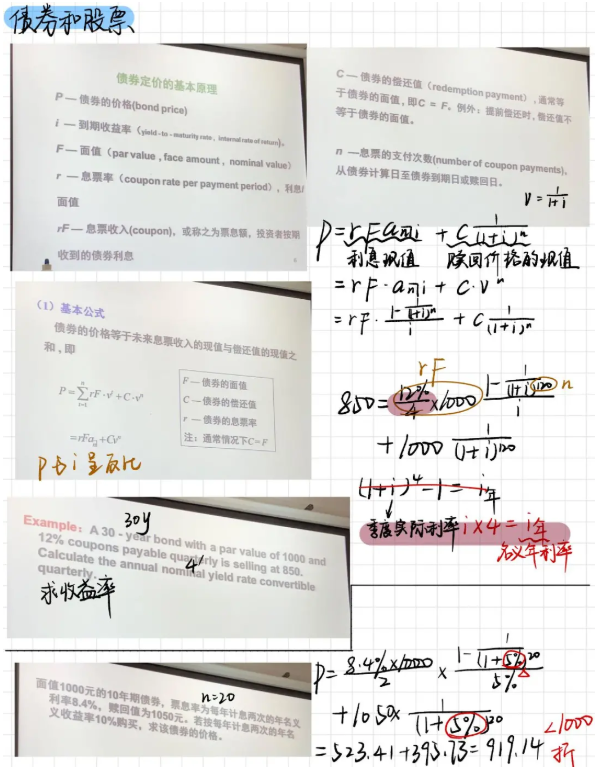 债券和股票
债券定价的基本原理
P — 债券的价格(bond price)
i — 到期收益率 (yield-to-maturity rate, internal rate of return)。
F — 面值 (par value, face amount, nominal value)
r — 息票率 (coupon rate per payment period), 利息/
面值
rF — 息票收入(coupon), 或称之为票息额, 投资者按期
收到的债券利息
C — 债券的偿还值 (redemption payment), 通常等
于债券的面值, 即C = F。例外: 提前偿还时, 偿还值不
等于债券的面值。
n — 息票的支付次数(number of coupon payments),
从债券计算日至债券到期日或赎回日。
v = 1/(1+i)
P = rF a_n¬i + C 1/(1+i)^n
利息现值 赎回价格的现值
= rF · a_n¬i + C · v^n
= rF · (1 - 1/(1+i)^n)/i + C 1/(1+i)^n
(1) 基本公式
债券的价格等于未来息票收入的现值与偿还值的现值之
和, 即
P = Σ rF · v^t + C · v^n
= rFa_n¬ + Cv^n
F — 债券的面值
C — 债券的偿还值
r — 债券的息票率
注: 通常情况下C=F
P与i呈反比
rF
850 = 12%/4 × 1000 (1 - 1/(1+i)^120)/i n
+ 1000 1/(1+i)^120
(1+i)^4 - 1 = i年
季度实际利率 i × 4 = i年
名义年利率
30y
Example: A 30 - year bond with a par value of 1000 and
12% coupons payable quarterly is selling at 850.
Calculate the annual nominal yield rate convertible
quarterly.
4
求收益率
n=20
面值1000元的10年期债券, 票息率为每年计息两次的年名义
利率8.4%, 赎回值为1050元。若按每年计息两次的年名
义收益率10%购买, 求该债券的价格。
P = 8.4%×1000/2 × (1 - 1/(1+5%)^20)/5%
+ 1050 × 1/(1+5%)^20
= 523.41 + 395.73 = 919.14 <1000
折